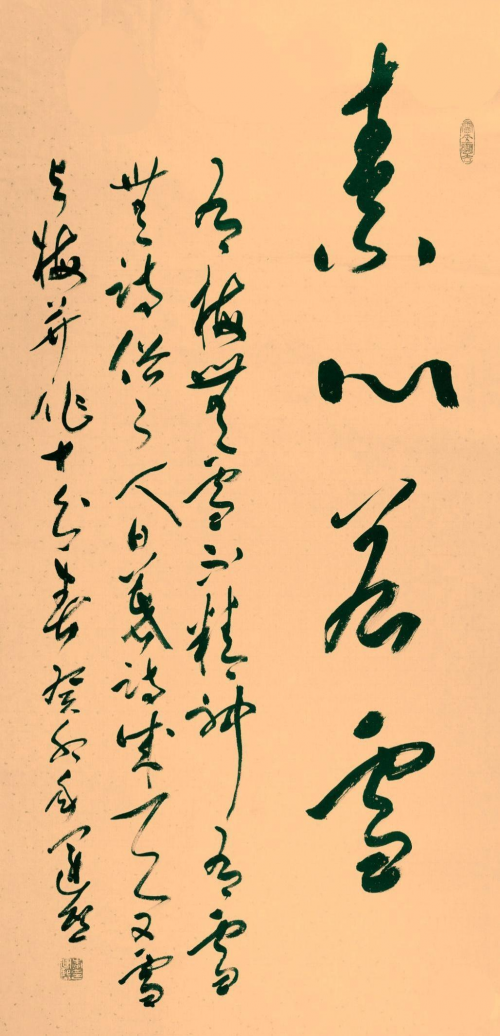 素心若雪
有梅無雪不精神有雪
無詩俗了人日暮詩成天又雪
与梅并作十分春癸卯年